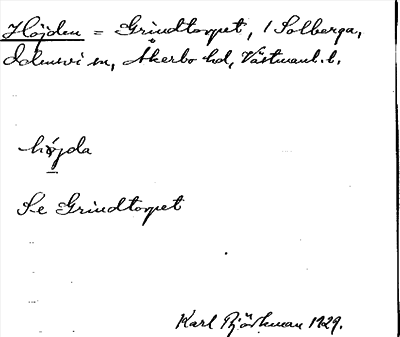 Höjden = Grindtorpet, / Solberga,
Odensvi sn, Åkerbo hd, Västmanl. l.
höjda
Se Grindtorpet
Karl Björkman 1929.